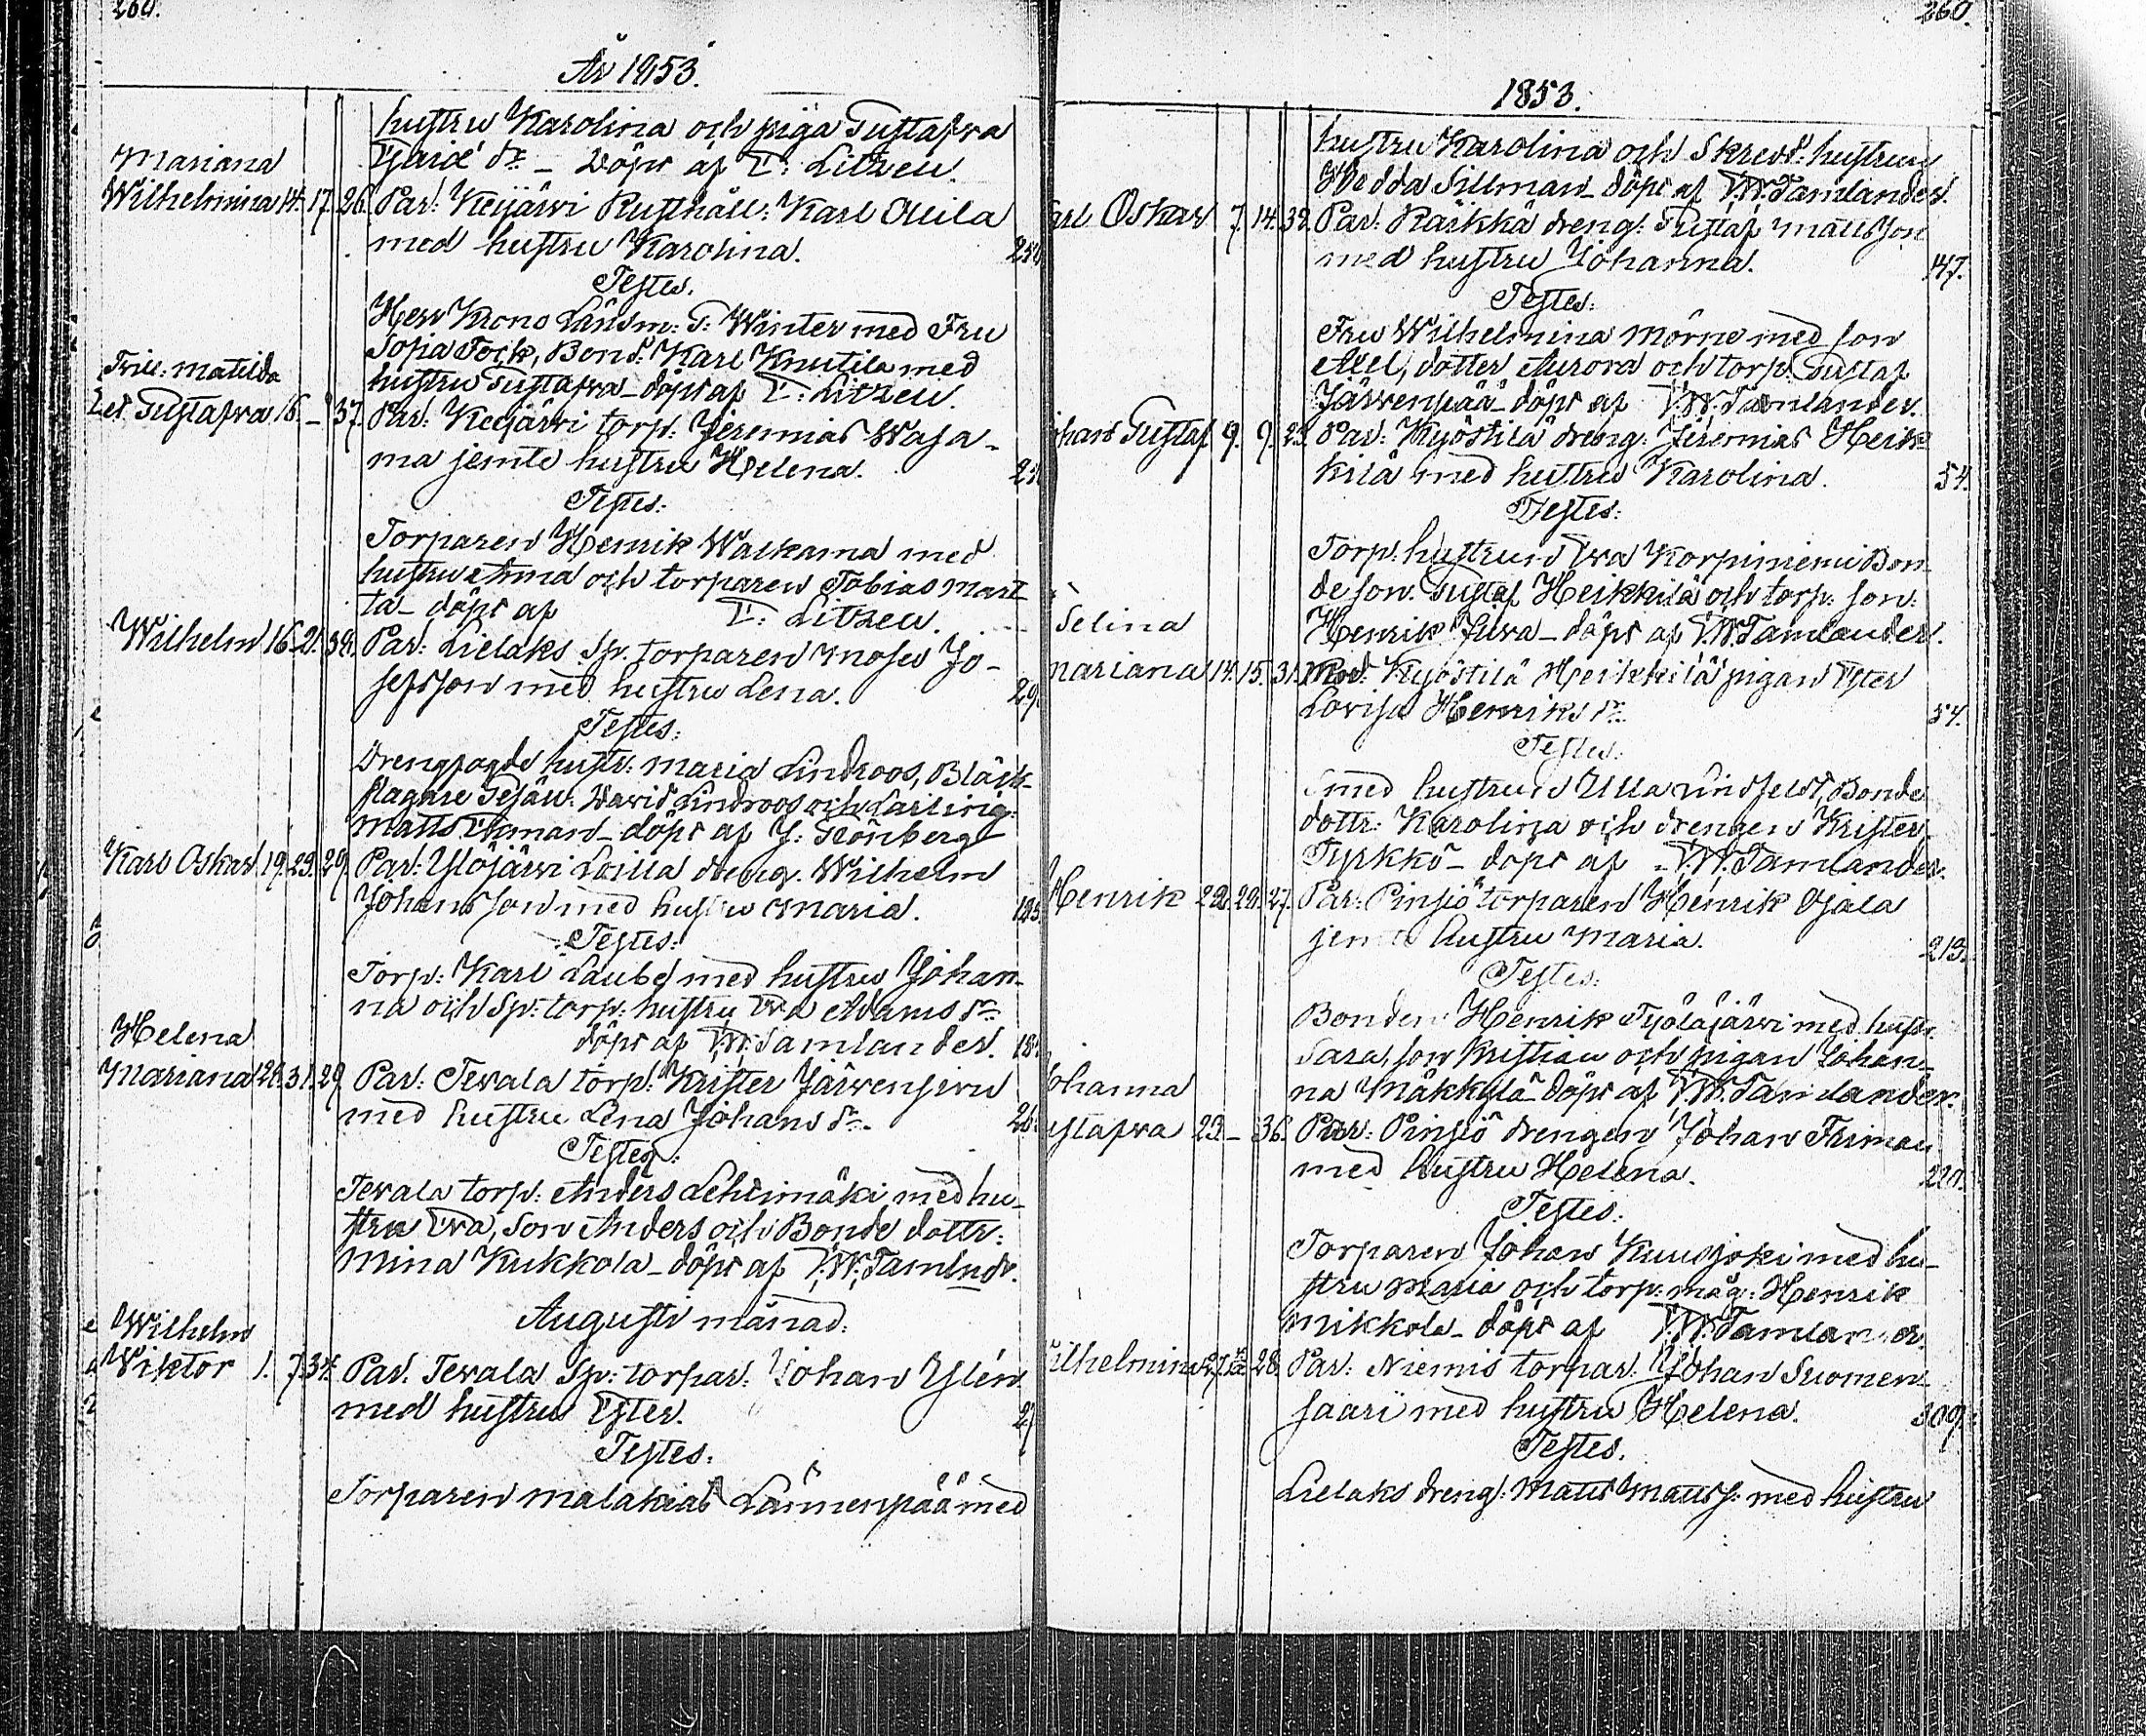 260.
År 1853.
hustru Karolina och piga Gustafva
Dr. – döpt af T: Litzen.
Mariana
Wilhelmina 14. 17. 26. Par: Keijärvi Rusthåll: Karl Ollila
med hustru Karolina.
Testes.
Herr Krono Länsm: G: Winter med Fru
Sofia Fock, Bond. Karl Knutila med
hustru Gustafva – döpt af T: Litzen.
Matilda
Gustafva 16. – 37. Par: Keijärvi torp: Jeremias Waja-
ma jemte hustru Helena.
Testes:
Torparen Henrik Walkama med
hustru Anna och torparen Tobias Mart-
ta – döpt af T: Litzen.
Wilhelm 16. 21. 38. Par: Lielaks Sp. torparen Moses Jo-
sefsson med hustru Lena. 29
Testes:
Drengfogde hustr: Maria Lindroos, Bläck-
slagare Gesäll: David Lindroos och
Matts – döpt af J: Grönberg
Karl Oskar 19. 23. 29. Par: Ylöjärvi Loilla dreng. Wilhelm
Johansson med hustru Maria.
Testes:
Torp: Karl Laube med hustru Johan-
na och Sp: torp: hustru Eva Adams Dr.
döpt af W. Tamlander.
Helena
Mariana 28. 31. 29. Par: Tevala torp: Krister Järvensivu
med hustru Lena Johans Dr.
Testes:
Tevala torp: Anders Lehtimäki med hu-
stru Eva, Son Anders och Bonde dottr:
Mina Kukkola – döpt af W. Tamlndr.
Augusti månad.
Wilhelm
Wiktor 1. 7. 34. Par. Tevala Sp: torpar: Johan Ylén
med hustru Ester.
Testes.
Torparen Malakias Lännenpää med
260.
1853.
hustru Karolina och Skredd: hustrun
Hedda Sillman – döpt af W. Tamlander.
Karl Oskar 7. 14. 32. Par: Räikkä dreng: Gustaf Mattsson
med hustru Johanna. 147.
Testes:
Fru Wilhelmina Mörne med son
Axel, dotter Aurora och torp: Gustaf
Järvenpää – döpt af W. Tamlander.
Johan Gustaf 9. 9. 23. Par: Kyöstilä dreng: Jeremias Heik-
kilä med hustru Karolina. 54.
Testes:
Torp: hustrun Eva Korpiniemi Bon-
de son Gustaf Heikkilä och torp: son:
Henrik Juva – döpt af W. Tamlander.
Selina
Mariana 14. 15. 31. Mod: Kyöstilä Heikkilä pigan Ester
Lovisa Henriks Dr. 54.
Testes:
Smed hustrun Ulla Lindfelt, Bonde
dottr: Karolina och drengen Krister
Tyrkkö – döpt af W. Tamlander.
Henrik 22. 29. 27. Par: Pinsiö torparen Henrik Ojala
jemte hustru Maria. 213.
Testes:
Bonden Henrik Työläjärvi med hustr.
Sara, son Kristian och pigan Johan-
na Mäkkylä – döpt af W. Tamlander.
Johanna
Gustafva 23. – 36. Par: Pinsiö drengen Johan Friman
med hustru Helena. 220.
Testes:
Torparen Johan Kuusjoki med hu-
stru Maria och torp: måg: Henrik
Mikkola – döpt af W. Tamlander.
Wilhelmina 28. Par: Niemis torpar: Johan Suomen-
saari med hustru Helena. 309.
Testes.
Lielaks dreng: Matts Mattss: med hustru